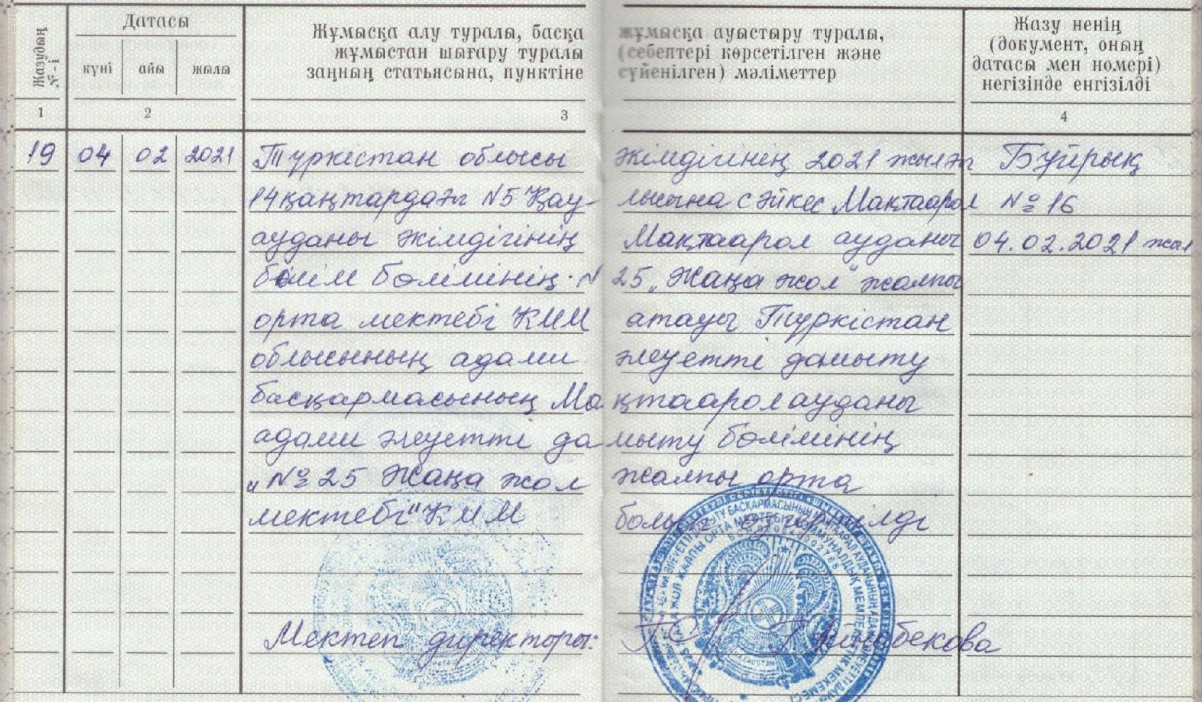 Жазудың №-і
Датасы
күні айы жылы
Жұмысқа алу туралы, басқа жұмысқа ауыстыру туралы,
жұмыстан шығару туралы (себептері көрсетілген және
заңның статьясына, пунктіне сүйенілген) мәліметтер
Жазу ненің
(документ, оның
датасы мен номері)
негізінде енгізілді
1 2 3 4
19 04 02 2021 Түркістан облысы әкімдігінің 2021 жылғы Бұйрық
14 қаңтардағы №5 Қау- лысына сәйкес Мақтаарал № 16
ауданы әкімдігінің Мақтаарал ауданы 04.02.2021 жыл
білім бөлімінің N 25 „Жаңа жол" жалпы
орта мектебі КММ атауы Түркістан
облысының адами әлеуетті дамыту
басқармасының Мақтаарал ауданы
адами әлеуетті дамыту бөлімінің
„№ 25 Жаңа жол жалпы орта
мектебі" КММ болып өзгертілді
Мектеп директоры: